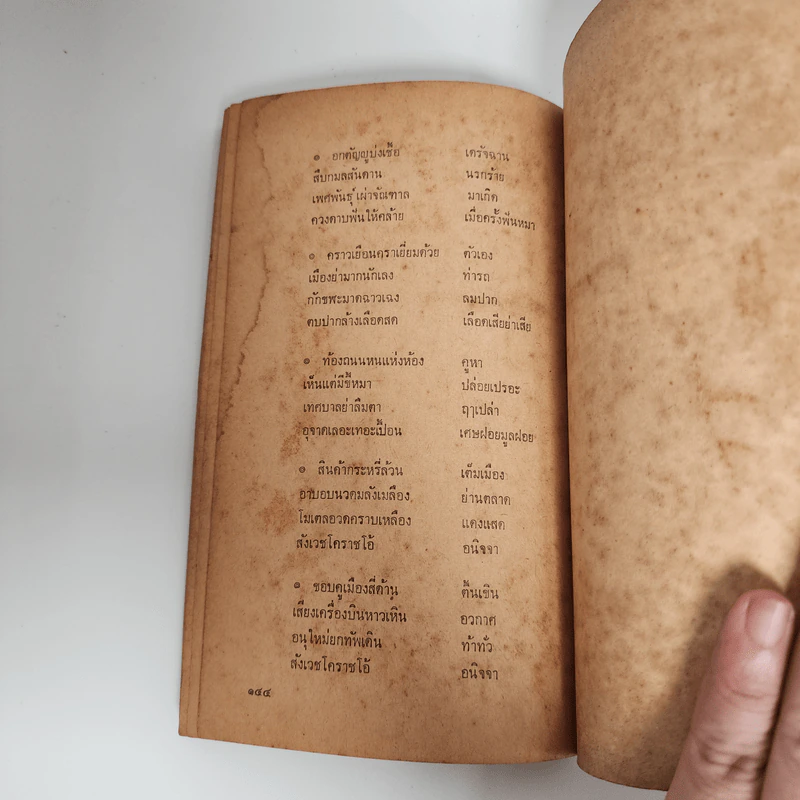 ๏ อกตัญญูบ่งเชื้อ เดรัจฉาน
สืบกมลสันดาน นรกร้าย
เพศพันธุ์เผ่าจัณฑาล มาเกิด
ควงดาบฟันให้คล้าย เมื่อครั้งฟันหมา
๏ คราวเยือนคราเยี่ยมด้วย ตัวเอง
เมืองย่ามากนักเลง ท่ารถ
กักขฬะมาดฉาวเฉง ลมปาก
ตบปากล้างเลือดสด เลือดเสียย่าเสีย
๏ ท้องถนนหนแห่งห้อง คูหา
เห็นแต่มีขี้หมา ปล่อยเปรอะ
เทศบาลย่าลืมตา ฤๅเปล่า
อุจาดเลอะเทอะเปื้อน เศษฝอยมูลฝอย
๏ สินค้ากระหรี่ล้วน เต็มเมือง
อาบอบนวดมลังเมลือง ย่านตลาด
โมเตลอวดคราบเหลือง แดงแสด
สังเวชโคราชโอ้ อนิจจา
๏ ขอบคูเมืองสี่ด้าน ตื้นเขิน
เสียงเครื่องบินหาวเหิน อวกาศ
อนุใหม่ยกทัพเดิน ท้าทั่ว
สังเวชโคราชโอ้ อนิจจา
๑๔๔